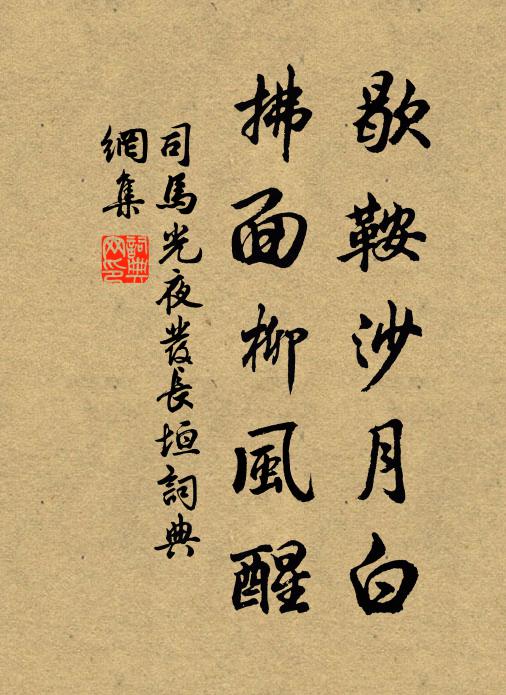 歇鞍沙月白
拂面柳風醒
司馬光夜發長垣詞典
網集
詞典
网印